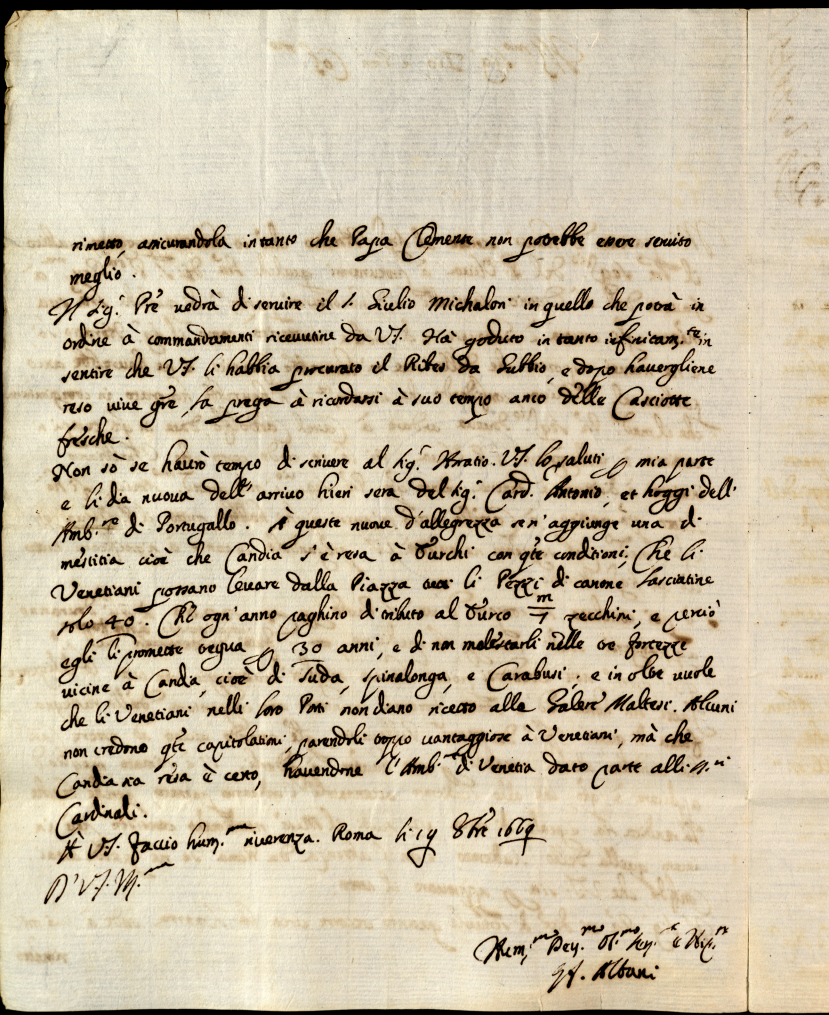 rimetto, assicurandola intanto che Papa Clemente non potrebbe essere servito
meglio.
Il Sig.r Pr̃e vedrà di servire il S. Giulio Michaloni in quello che potrà in
ordine à commandamenti ricevutine da VS. Hà goduto intanto infinitam.te in
sentire che VS. li habbia procurato il Ribes da Gubbio, e dopo havergliene
reso vive gr̃e, la prega à ricordarsi à suo tempo anco delle Casciotte
fresche.
Non sò se haurò tempo di scrivere al Sig.r Horatio. VS. lo saluti p mia parte
e li dia nuova dell' arrivo hieri sera del Sig.r Card. Antonio, et hoggi dell'
Amb.re di Portugallo. A queste nuove d'allegrezza se n'aggiunge una di
mestitia cioè che Candia s'è resa à Turchi con q̃te conditioni; Che li
Venetiani possano levare dalla Piazza li Pezzi di canone lasciatine
solo 40. Che ogn'anno paghino di tributo al Turco m/7 zecchini, e perciò
egli li promette tregua p 30 anni, e di non molestarli nelle tre fortezze
vicine à Candia, cioè di Suda, Spinalonga, e Carabusi. e in oltre vuole
che li Venetiani nelli loro Porti non diano ricetto alle Galere Maltesi. Alcuni
non credono q̃te capitolationi, parendoli troppo vantaggiose à Venetiani, mà che
Candia sia resa è certo, havendone l'Amb.re di Venetia dato parte alli SS.ri
Cardinali.
A VS. faccio hum.ma riverenza. Roma li 19 8bre 1669
D' VS. M.
Hum.mo Dev.mo Ob.mo Ser.e e Nip.
Albani